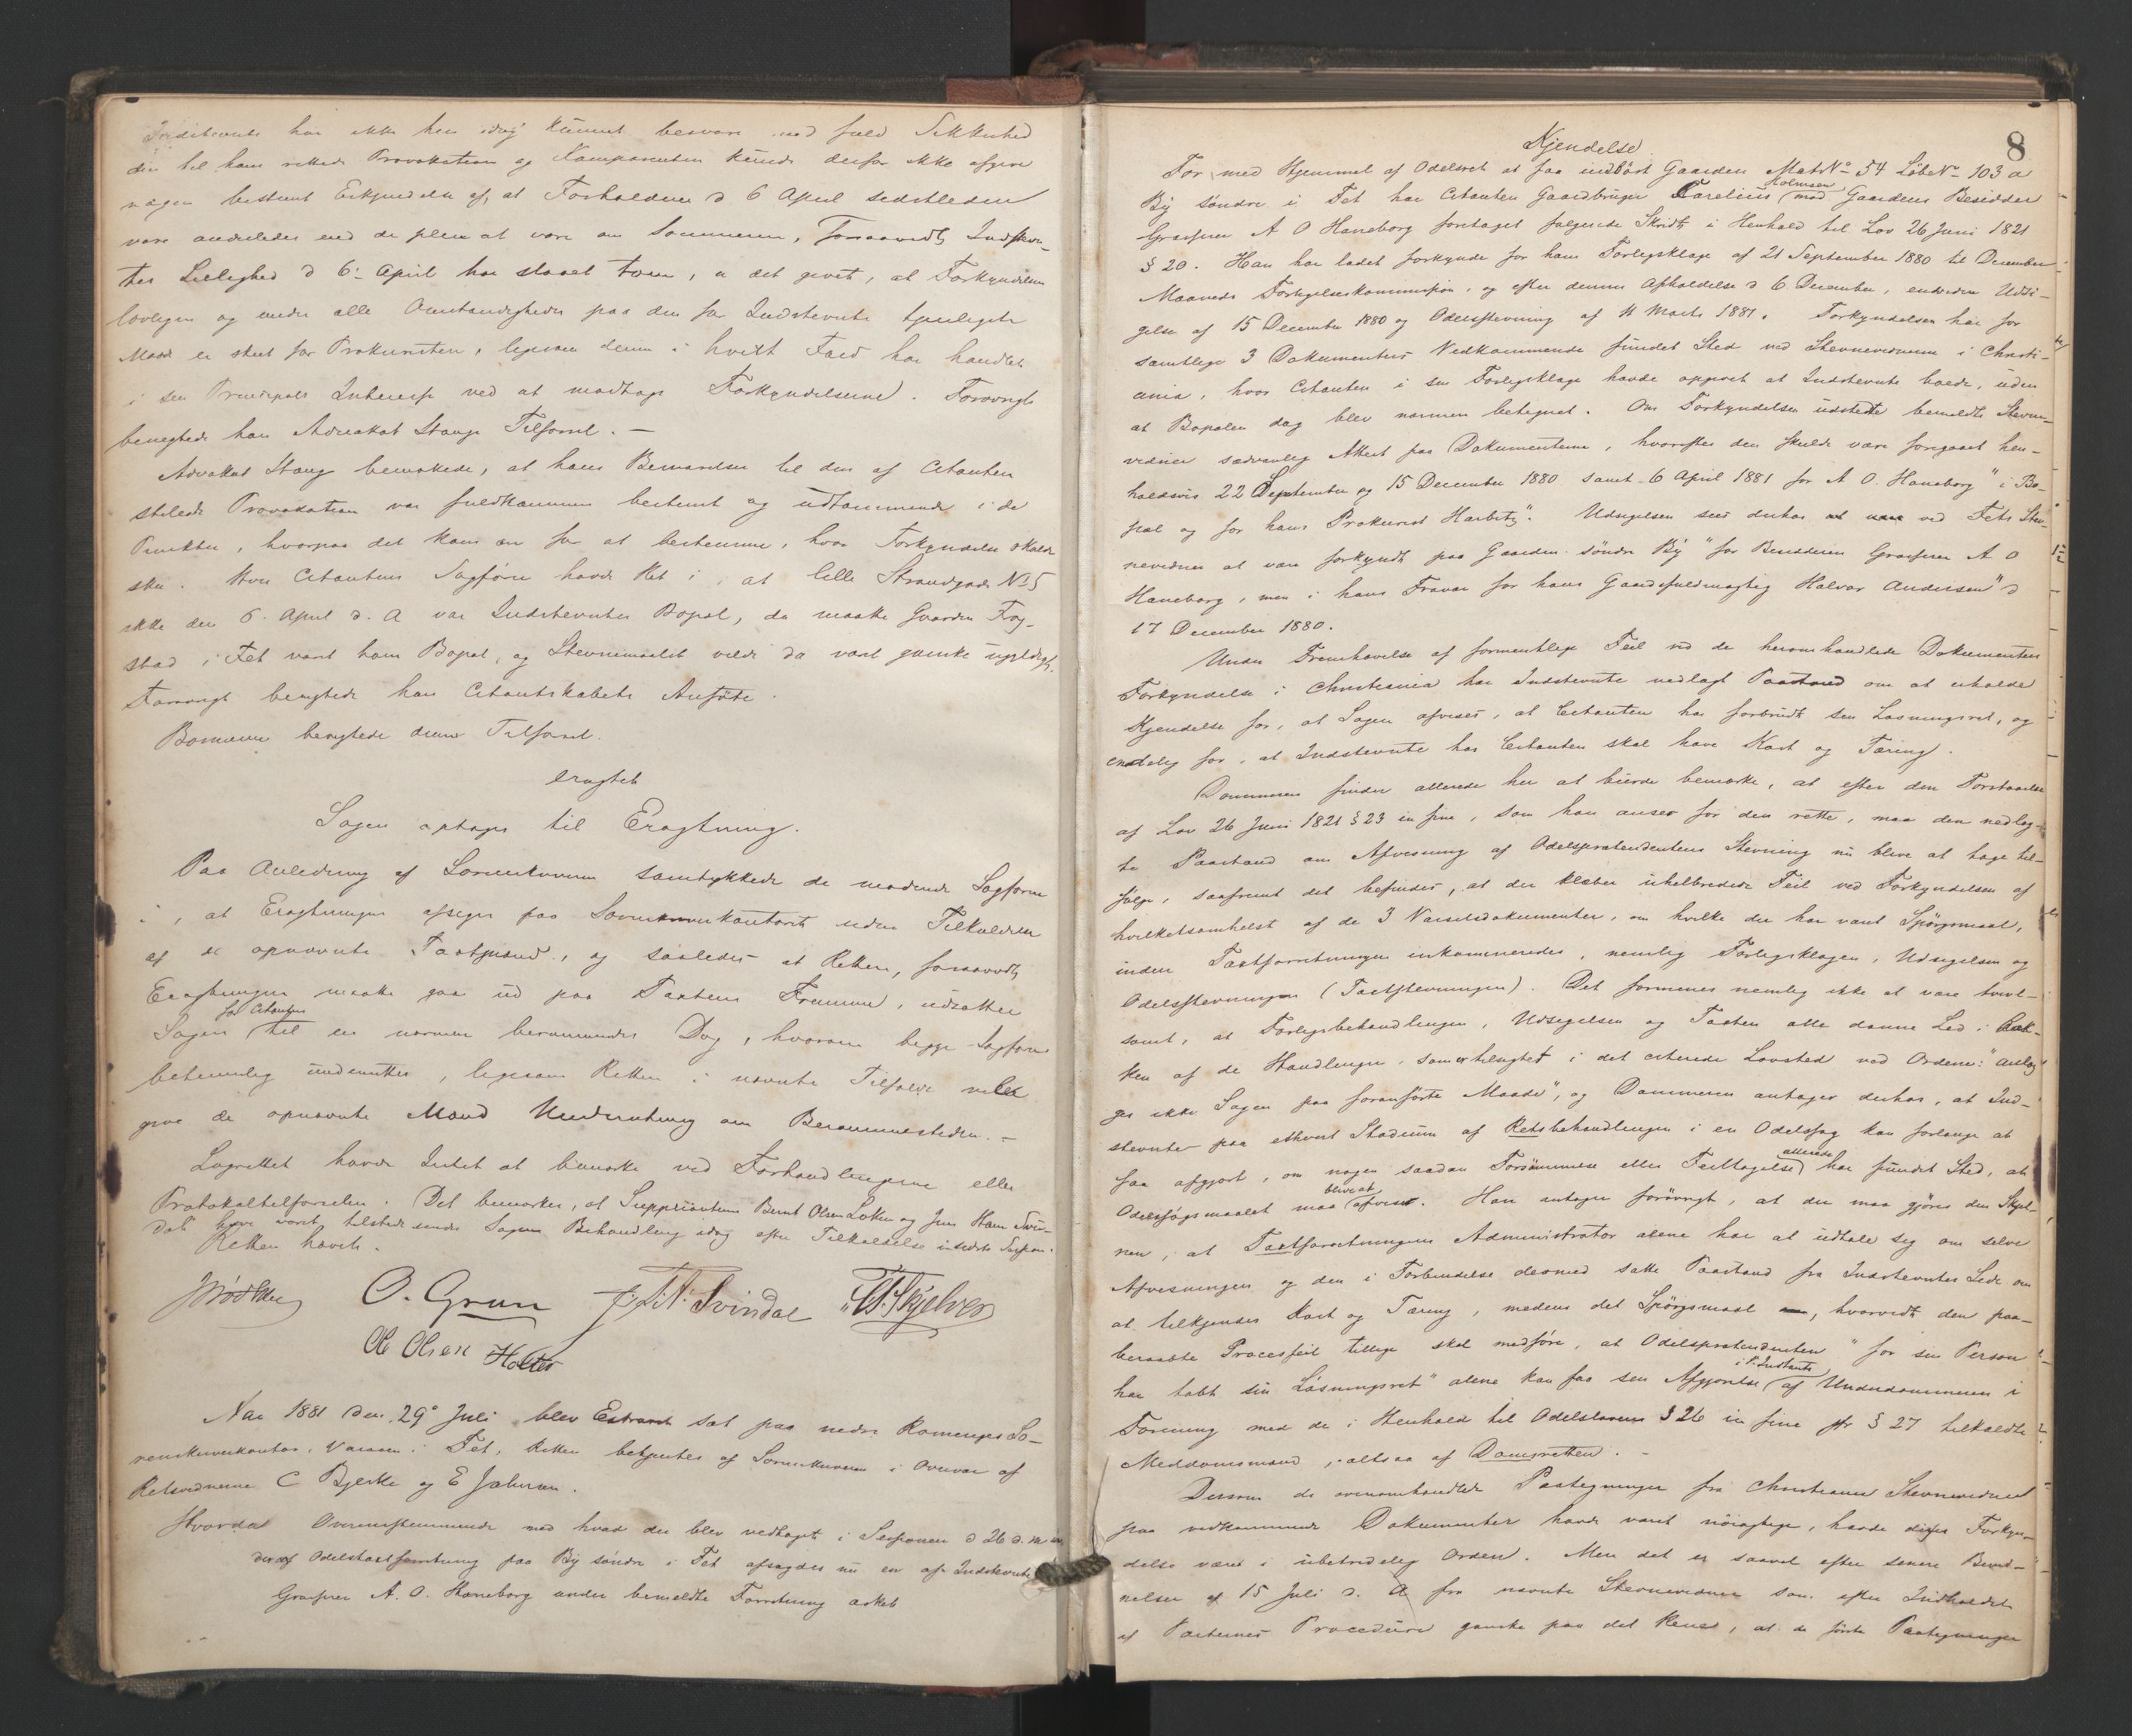 Indstevnte har ikke her idag kunnet besvare med fuld Sikkerhed
den til ham rettede Provokation og Komparenten kunde derfor ikke afgive
nogen bestemt Erkjendelse af, at Forholdene d 6 April sidstleden
vare anderledes end de pleie at være om Sommeren. Forsaavidt Indstevn-
tes Leilighed d 6. April har staaet tom, er det givet, at Forkyndelsen
lovligen og under alle Omstændigheder paa den for Indstevnte tjenligste
Maade er skeet for Prokuristen, ligesom denne i hvert Fald har handlet
i sin Principals Interesse ved at modtage Forkyndelserne. Forøvrigt
benegtede han Advokat Stangs Tilførsel. –
Advokat Stang bemærkede, at hans Besvarelse til den af Citanten
stilede Provokation var fuldkommen bestemt og udtømmende i de
Punkter, hvorpaa det kom an for at bestemme, hvor Forkyndelse skulde
ske. Hvis Citantens Sagfører havde Ret i, at lille Strandgade No 5
ikke den 6. April d. A var Indstevntes Bopæl, da maatte Gaarden Fog-
stad i Fet været hans Bopæl, og Stevnemaalet vilde da været ganske ugyldigt.
Forøvrigt benegtede han Citantskabets Anførte.
Bomann benegtede denne Tilførsel.
eragtet
Sagen optages til Eragtning.
Paa Anledning af Sorenskriveren samtykkede de mødende Sagførere
i, at Eragtningen afsiges paa Sorenskriverkontoret uden Tilkaldelse
af de opnævnte Taxtmænd, og saaledes at Retten, forsaavidt
Eragtningen maatte gaa ud paa Taxtens Fremme, udsætter
Sagen for Citanten til en nærmere berammendes Dag, hvorom begge Sagførere
betimelig underrettes, ligesom Retten i nævnte Tilfælde vilde
give de opnævnte Mænd Underretning om Berammelsen. –
Lagrettet havde Intet at bemærke ved Forhandlingerne eller
Protokoltilførselen. Det bemærkes, at Supplianterne Bernt Olsen Løken og Jens Hans Svin-
dal have været tilstede under Sagens Behandling idag efter Tilkaldelse
Retten hævet.
O. Grun J. A. Svindal Skjelver
Ole Olsen Holter
Aar 1881 den 29. Juli blev Extraret sat paa nedre Romeriges So-
renskriverkontor, Varaaen i Fet. Retten betjentes af Sorenskriveren i Overvær af
Retsvidnerne C Bjerke og E Johnsen.
Hvorda Overensstemmende med hvad der blev vedtaget i Sessionen d 26 d. M
Odelstaxtforretning paa By søndre i Fet afsagdes nu en af Indstevnte
Grosserer A. O. Haneborg under bemeldte Forretning æsket
8
Kjendelse
For med Hjemmel af Odelsret at faa indløst Gaarden Matr No 54 Løbe No 103 a
By søndre i Fet har Citanten Gaardbruger Carelius Holmsen mod Gaardens Besidder
Grosserer A O Haneborg foretaget følgende Skridt i Henhold til Lov 26 Juni 1821
§ 20. Han har ladet forkynde for ham Forligsklage af 21 September 1880 til December
Maaneds Forligelseskommission, og efter dennes Afholdelse d 6 December, endvidere Udsi-
gelse af 15 December 1880 og Odelsstevning af 11 Marts 1881. Forkyndelsen har for
samtlige 3 Dokumenters Vedkommende fundet Sted ved Stevnevidnerne i Christi-
ania, hvor Citanten i sin Forligsklage havde opgivet at Indstevnte boede, uden
at Bopælen dog blev nærmere betegnet. Om Forkyndelsen udstedte bemeldte Stevne-
vidner sædvanlig Attest paa Dokumenterne, hvorefter den skulde være foregaaet hen-
holdsvis 22 September og 15 December 1880 samt 6 April 1881 for A O. Haneborg "i Bo-
pæl og for hans Prokurist Harbitz". Udsigelsen sees derhos ved Fets Stev-
nevidner at være forkyndt paa Gaarden søndre By "for Besidderen Grosserer A O
Haneborg, men i hans Fravær for hans Gaardsfuldmægtig Halvor Andersen" d
17 December 1880.
Under Fremhævelse af formentlige Feil ved de heromhandlede Dokumenters
Forkyndelse i Christiania har Indstevnte nedlagt Paastand om at erholde
Kjendelse for, at Sagen afvises, at Citanten har forbrudt sin Løsningsret, og
endelig for, at Indstevnte hos Citanten skal have Kost og Tæring.
Dommeren finder allerede her at burde bemærke, at efter den Forstaaelse
af Lov 26 Juni 1821 § 23 in fine, som han anser for den rette, maa den nedlag-
te Paastand om Afvisning af Odelsprætendentens Stevning nu blive at tage til-
følge, saafremt det befindes, at der klæber uhelbredede Feil ved Forkyndelsen af
hvilketsomhelst af de 3 Varselsdokumenter, om hvilke der har været Spørgsmaal,
inden Taxtforretningen inkamineredes, nemlig Forligsklagen, Udsigelsen og
Odelsstevningen (Taxtstevningen). Det formenes nemlig ikke at være tvivl-
somt, at Forligsbehandlingen, Udsigelsen og Taxten alle danne Led i Ræk-
ken af de Handlinger, som er tilsigtet i det citerede Lovsted ved Ordene: "anlæg-
ges ikke Sagen paa foranførte Maade", og Dommeren antager derhos, at Ind-
stevnte paa ethvert Stadium af Retsbehandlingen i en Odelssag kan forlange at
faa afgjort, om nogen saadan Forsømmelse eller Feiltagelse allerede har fundet Sted, at
Odelssøgsmaalet maa blive at afvise. Han antager forøvrigt, at der maa gjøres den Skjel-
nen, at Taxtforretningens Administrator alene har at udtale sig om selve
Afvisningen og den i Forbindelse dermed satte Paastand fra Indstevntes Side om
at tilkjendes Kost og Tæring, medens det Spørgsmaal, hvorvidt den paa-
beraabte Procesfeil tillige skal medføre, at Odelsprætendenten "for sin Person
har tabt sin Løsningsret" alene kan faa sin Afgjørelse i 1. Instants af Underdommeren i
Forening med de i Henhold til Odelslovens § 26 in fine jfr § 27 tilkaldte
Meddomsmænd, altsaa af Domsretten. –
Dersom de ovenomhandlede Paategninger fra Christiania Stevnevidner
paa vedkommende Dokumenter havde været nøiagtige, havde disses Forkyn-
delse været i ubetridelig Orden. Men det er saavel efter senere Bevid-
nelser af 15 Juli d. A fra nævnte Stevnevidner som efter Indholdet
af Parternes Procedure ganske paa det Rene, at de første Paategninger